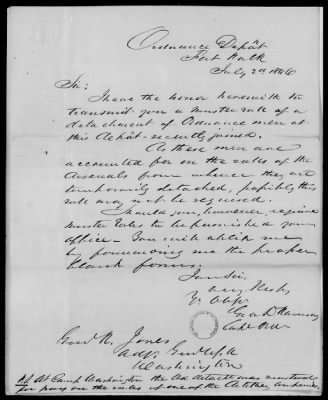 Ordnance Depôt
Fort Polk
July 2d 1846
Sir:
I have the honor herewith to
transmit you a muster role of a
detachment of Ordnance men at
this Depôt recently joined.
As these men are
accounted for on the roles of the
Arsenals from whence they are
temporarily detached, possibly this
role may not be required.
Should you, however, require
muster roles to be furnished your
office - You will oblige me
by forwarding me the proper
blank forms.
I am Sir,
Very Resp.
Yr. Obt.
Geo D Ramsay
Capt Ord
Genl R. Jones
Adjt. Genl U.S.A.
Washington
P.S. At Camp Washington the Ord detacht was mustered
for pay on the roles of one of the Artillery